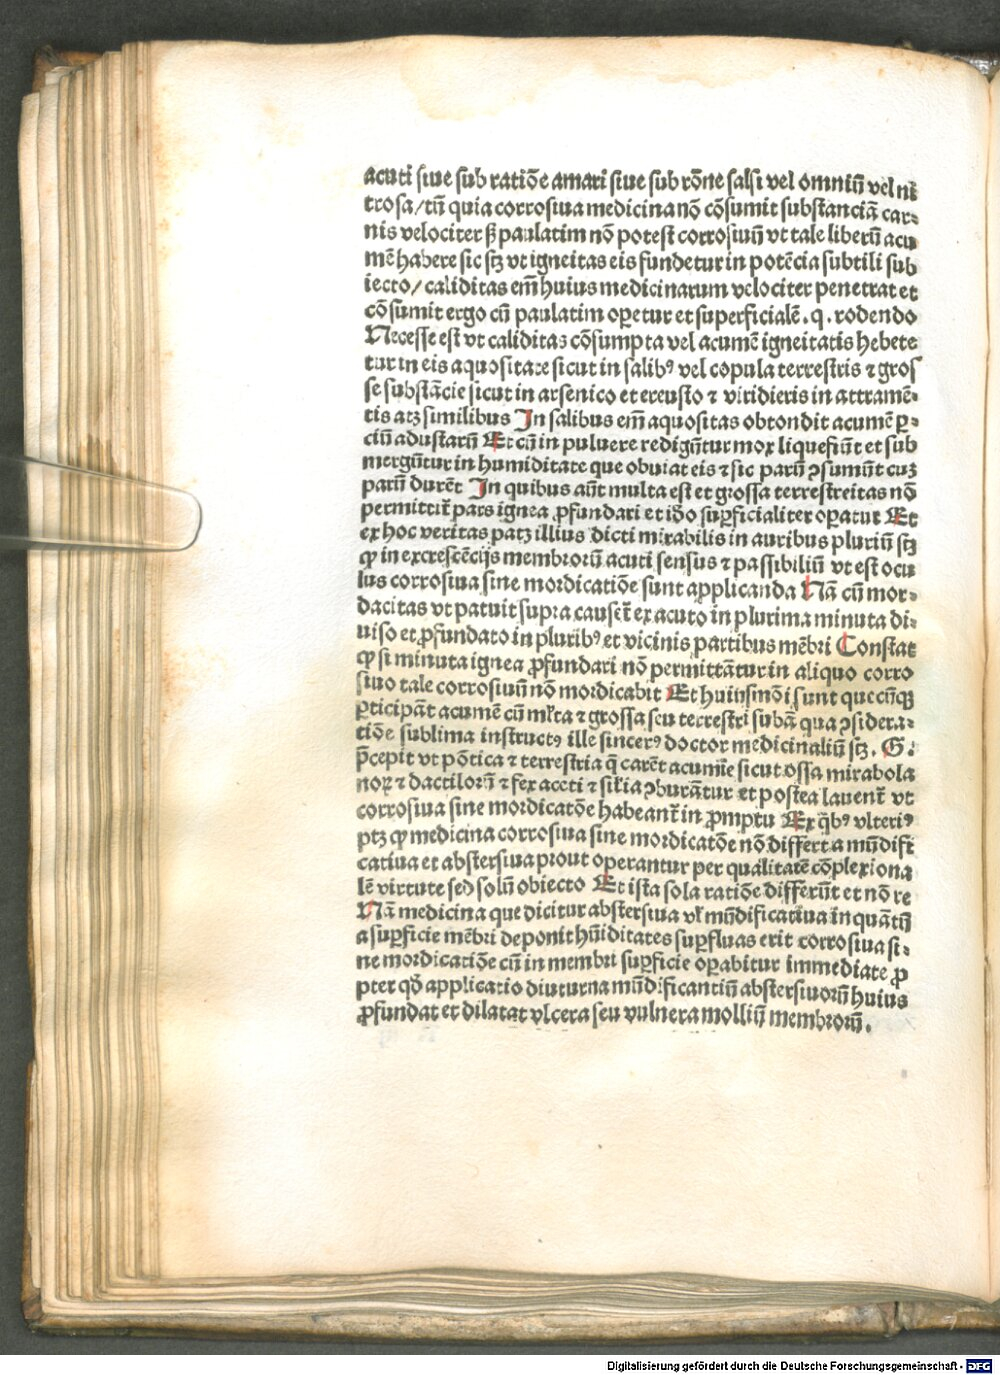 acuti siue sub ratiõe amari siue sub rõne salsi vel omniũ vel ni
trosa/tñ quia corrosiua medicina nõ cõsumit substanciã car⸗
nis velociter sꝫ paulatim nõ potest corrosiuũ vt tale liberũ acu
mẽ habere sic scꝫ vt igneitas eis fundetur in potẽcia subtili sub
iecto/caliditas em̃ huius medicinarum velociter penetrat et
cõsumit ergo cũ paulatim oꝑetur et superficialẽ.q. rodendo
Necesse est vt caliditas cõsumpta vel acumẽ igneitatis hebete
tur in eis aquositate sicut in salibꝰ vel copula terrestris ⁊ gros
se substãcie sicut in arsenico et ereusto ⁊ viridieris in attramẽ⸗
tis atqꝫ similibus In salibus em̃ aquositas obtondit acumẽ ꝑ⸗
ciũ adustarũ Et cũ in puluere redigũtur mox liquefiũt et sub
mergũtur in humiditate que obuiat eis ⁊ sic parũ ꝯsumũt cuꝫ
parũ durẽt In quibus aũt multa est et grossa terrestreitas nõ
permittit̃ pars ignea ꝓfundari et iõo suꝑficialiter oꝑatur Et
ex hoc veritas patꝫ illius dicti mirabilis in auribus pluriũ scꝫ
ꝙ in excrescẽcijs membrorũ acuti sensus ⁊ passibiliũ vt est ocu
lus corrosiua sine mordicatiõe sunt applicanda Nã cũ mor⸗
dacitas vt patuit supra causet̃ ex acuto in plurima minuta di⸗
uiso et ꝓfundato in pluribꝰ et vicinis partibus mẽbri Constat
ꝙ si minuta ignea ꝓfundari nõ permittãtur in aliquo corro
siuo tale corrosiuũ nõ mordicabit Et huiusmõi sunt que cũqꝫ
ꝑticipãt acumẽ cũ mĩta ⁊ grossa seu terrestri subã qua ꝯsidera⸗
tiõe sublima instructꝰ ille sincerꝰ doctor medicinaliũ scꝫ.G.
p̃cepit vt põtica ⁊ terrestria q̃ carẽt acumĩe sicut ossa mirabola
noꝝ ⁊ dactilorũ ⁊ fex aceti ⁊ sil̃ia ꝯburãtur et postea lauent̃ vt
corrosiua sine mordicatõe habeant̃ in ꝓmptu Ex q̃bꝰ vlteriꝰ
ptꝫ ꝙ medicina corrosiua sine mordicatõe nõ differt a mũdifi
catiua et abstersiua prout operantur per qualitatẽ cõplexiona
lẽ virtute sed solũ obiecto Et ista sola ratiõe differũt et nõ re
Nã medicina que dicitur abstersiua vl̃ mũdificatiua in quãtũ
a suꝑficie mẽbri deponit hũiditates suꝑfluas erit corrosiua si⸗
ne mordicatiõe cũ in membri suꝑficie oꝑabitur immediate ꝓ
pter qõ applicatio diuturna mũdificantiũ abstersiuorũ huius
ꝓfundat et dilatat vlcera seu vulnera molliũ membrorũ.
Digitalisierung gefördert durch die Deutsche Forschungsgemeinschaft - DFG